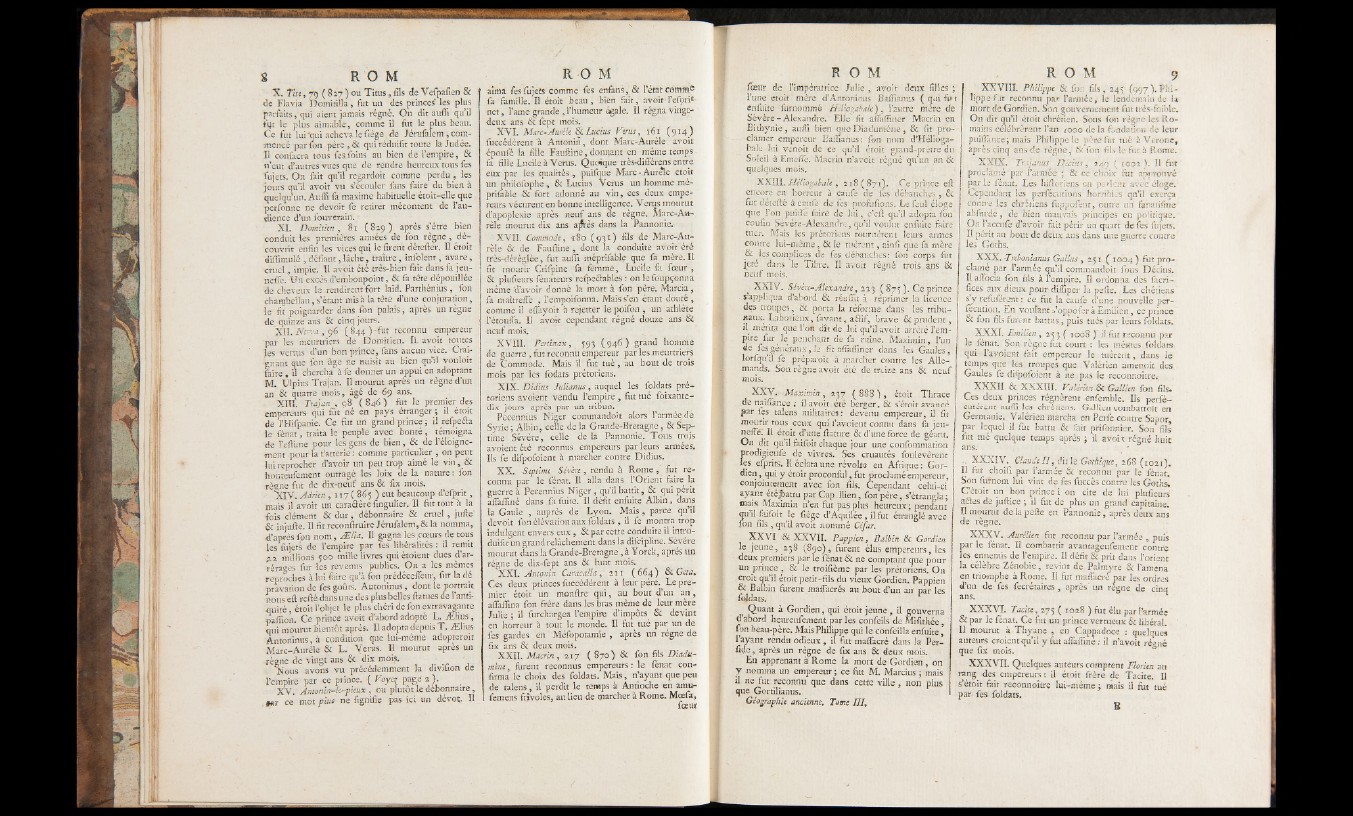 8 R O M
X. Tite, 79 (827) ou Titus, fils de Vespasien &
de Flavia Domitilla, fut un des princes les plus
parfaits, qui aient jamais régné. On dit aussi qu'il
fut le plus aimable, comme il fut le plus beau.
Ce fut lui qui acheva le siége de Jérusalem, com-
mencé par son père, & qui réduisit toute la Judée.
Il consacra tous ses soins au bien de l'empire, &
n'eut d'autres vues que de rendre heureux tous ses
sujets. On sait qu'il regardoit comme perdu, les
jours qu'il avoit vu s'écouler sans faire du bien à
quelqu'un. Aussi sa maxime habituelle étoit-elle que
personne ne devoit se retirer mécontent de l'au-
dience d'un souverain.
XI. Domitien, 81 (829) après s'être bien
conduit les premières années de son règne, dé-
couvrit enfin les vices qui le firent détester. Il étoit
dissimulé, défiant, lâche, traître, insolent, avare,
cruel, impie. Il avoit été très-bien fait dans sa jeu-
nesse. Un excès d'embonpoint, & sa tête dépouillée
de cheveux le rendirent fort laid. Parthénius, son
chambellan, s'étant mis à la tête d'une conjuration,
le fit poignarder dans son palais, après un règne
de quinze ans & cinq jours.
XII. Nerva, 96 (844) fut reconnu empereur
par les meurtriers de Domitien. Il avoit toutes
les vertus d'un bon prince, sans aucun vice. Crai-
gnant que son âge ne nuisît au bien qu'il vouloit
faire, il chercha à se donner un appui en adoptant
M. Ulpius Trajan. Il mourut après un règne d'un
an & quatre mois, âgé de 69 ans.
XIII. Trajan, 98 (846) fut le premier des
empereurs qui fût né en pays étranger; il étoit
de l'Hispanie. Ce fut un grand prince; il respecta
le sénat, traita le peuple avec bonté, témoigna
de l'estime pour les gens de bien, & de l'éloigne-
ment pour la flatterie: comme particulier, on peut
lui reprocher d'avoir un peu trop aimé le vin, &
honteusement outragé les loix de la nature: son
règne fut de dix-neuf ans & six mois.
XIV. Adrien, 117 (865) eut beaucoup d'esprit,
mais il avoit un caractère singulier. Il fut tour à la
fois clément & dur, débonnaire & cruel, juste
& injuste. Il fit reconstruire Jérusalem, & la nomma,
d'après son nom, Ælia. Il gagna les cœurs de tous
les sujets de l'empire par ses libéralités: il remit
22 millions 500 mille livres qui étoient dues d'ar-
rérages sur les revenus publics. On a les mêmes
reproches à lui faire qu'à son prédécesseur, sur la dé
pravation de ses goûts. Antoninus, dont le portrait
nous est resté dans une des plus belles statues de l'anti-
quité, étoit l'objet le plus chéri de son extravagante
passion. Ce prince avoit d'abord adopté L. Ælius,
qui mourut bientôt après. Il adopta depuis T. Ælius
Antoninus, à condition que lui-même adopteroit
Marc-Aurèle & L. Verus. Il mourut après un
règne de vingt ans & dix mois.
Nous avons vu précédemment la division de
l'empire par ce prince. (Voyez page 2).
XV. Antonin-le-pieux, ou plutôt le débonnaire,
car ce mot pius ne signifie pas ici un dévot. Il
R O M
aima ses sujets comme ses enfans, & l'état comme
sa famille. Il étoit beau, bien fait, avoit l'esprit
net, l'ame grande, l'humeur égale. Il régna vingt-
deux ans & sept mois.
XVI. Marc-Aurèle & Lucius Verus, 161 (914)
succédèrent à Antonin, dont Marc-Aurèle avoit
épousé la fille Faustine, donnant en même temps
sa fille Lucile à Verus. Quoique très-différens entre
eux par les qualités, puisque Marc-Aurèle étoit
un philosophe, & Lucius Verus un homme mé-
prisable & fort adonné au vin, ces deux empe-
reurs vécurent en bonne intelligence. Verus mourut
d'apoplexie après neuf ans de règne. Marc-Au-
rèle mourut dix ans après dans la Pannonie.
XVII. Commode, 180 (931) fils de Marc-Au-
rèle & de Faustine, dont la conduite avoit été
très-déréglée, fut aussi méprisable que sa mère. Il
fit mourir Crispine sa femme, Lucile sa sœur,
& plusieurs sénateurs respectables: on le soupçonna
même d'avoir donné la mort à son père. Marcia,
sa maîtresse, l'empoisonna. Mais s'en étant douté,
comme il essayoit à rejetter le poison, un athlète
l'étouffa. Il avoit cependant régné douze ans &
neuf mois.
XVIII. Pertinax, 593 (946) grand homme
de guerre, fut reconnu empereur par les meurtriers
de Commode. Mais il fut tué, au bout de trois
mois par les soldats prétoriens.
XIX. Didius Julianus, auquel les soldats pré-
toriens avoient vendu l'empire, fut tué soixante-
dix jours après par un tribun.
Pecennius Niger commandoit alors l'armée de
Syrie; Albin, celle de la Grande-Bretagne, & Sep-
time Sévère, celle de la Pannonie. Tous trois
avoient été reconnus empereurs par leurs armées.
Ils se disposoient à marcher contre Didius.
XX. Septime Sévère, rendu à Rome, fut re-
connu par le sénat. Il alla dans l'Orient faire la
guerre à Pecennius Niger, qu'il battit, & qui périt
assassiné dans sa fuite. Il défit ensuite Albin, dans
la Gaule, auprès de Lyon. Mais, parce qu'il
devoit son élévation aux soldats, il se montra trop
indulgent envers eux, & par cette conduite il intro-
duisit un grand relâchement dans la discipline. Sévère
mourut dans la Grande-Bretagne, à Yorck, après un
règne de dix-sept ans & huit mois.
XXI. Antonin Caracalla, 211 (664) & Geta.
Ces deux princes succédèrent à leur père. Le pre-
mier étoit un monstre qui, au bout d'un an,
assassina son frère dans les bras même de leur mère
Julie; il surchargea l'empire d'impôts & devint
en horreur à tout le monde. Il fut tué par un de
ses gardes en Mésopotamie, après un règne de
six ans & deux mois.
XXII. Macrin, 217 (870) & son fils Diadu-
mène, furent reconnus empereurs: le sénat con-
firma le choix des soldats. Mais, n'ayant que peu
de talens, il perdit le temps à Antioche en amu-
semens frivoles, au lieu de marcher à Rome. Mœsa,
sœur
R O M
sœur de l'impératrice Julie, avoit deux filles;
l'une étoit mère d'Antoninus Bassianus (qui fut
ensuite surnommé Héliogabale), l'autre mère de
Sévère-Alexandre. Elle fit assassiner Macrin en
Bithynie, aussi bien que Diadumène, & fit pro-
clamer empereur Bassianus: son nom d'Hélioga-
bale lui venoit de ce qu'il étoit grand-prêtre du
Soleil à Emesse. Macrin n'avoit régné qu'un an &
quelques mois.
XXIII. Héliogabale, 218 (871). Ce prince est
encore en horreur à cause de ses débauches, &
fut détesté à cause de ses profusions. Le seul éloge
que l'on puisse faire de lui, c'est qu'il adopta son
cousin Sévère-Alexandre, qu'il voulut ensuite faire
tuer. Mais les prétoriens tournèrent leurs armes
contre lui-même, & le tuèrent, ainsi que sa mère
& les complices de ses débauches: son corps fut
jeté dans le Tibre. Il avoit régné trois ans &
neuf mois.
XXIV. Sévère-Alexandre, 223 (875). Ce prince
s'appliqua d'abord & réussit à réprimer la licence
des troupes, & porta la réforme dans les tribu-
naux. Laborieux, savant, actif, brave & prudent,
il mérita que l'on dît de lui qu'il avoit arrêté l'em-
pire sur le penchant de sa ruine. Maximin, l'un
de ses généraux, le fit assassiner dans les Gaules,
lorsqu'il se préparoit à marcher contre les Alle-
mands. Son règne avoit été de treize ans & neuf
mois.
XXV. Maximin, 237 (888), étoit Thrace
de naissance: il avoit été berger, & s'étoit avancé
par ses talens militaires: devenu empereur, il fit
mourir tous ceux qui l'avoient connu dans sa jeu-
nesse. Il étoit d'une stature & d'une force de géant.
On dit qu'il faisoit chaque jour une consommation
prodigieuse de vivres. Ses cruautés soulevèrent
les esprits. Il éclata une révolte en Afrique: Gor-
dien, qui y étoit proconsul, fut proclamé empereur,
conjointement avec son fils. Cependant celui-ci
ayant été battu par Capellien, son père, s'étrangla;
mais Maximin n'en fut pas plus heureux; pendant
qu'il faisoit le siège d'Aquilée, il fut étranglé avec
son fils, qu'il avoit nommé César.
XXVI & XXVII. Pappien, Balbin & Gordien
le jeune, 238 (890), furent élus empereurs, les
deux premiers par le sénat & ne comptant que pour
un prince, & le troisième par les prétoriens. On
croit qu'il étoit petit-fils du vieux Gordien. Pappien
& Balbin furent massacrés au bout d'un an par les
soldats.
Quant à Gordien, qui étoit jeune, il gouverna
d'abord heureusement par les conseils de Misithée,
son beau-père. Mais Philippe qui le conseilla ensuite,
l'ayant rendu odieux, il fut massacré dans la Per-
side, après un règne de six ans & deux mois.
En apprenant à Rome la mort de Gordien, on
y nomma un empereur; ce fut M. Marcius; mais
il ne fut reconnu que dans cette ville, non plus
que Gortilianus.
Géographie ancienne. Tome III.
R O M 9
XXVIII. Philippe & son fils, 245 (997). Phi-
lippe fut reconnu par l'armée, le lendemain de la
mort de Gordien. Son gouvernement fut très-foible.
On dit qu'il étoit chrétien. Sous son règne les Ro-
mains célébrèrent l'an 1000 de la fondation de leur
puissance; mais Philippe le père fut tué à Vérone,
après cinq ans de règne, & son fils le fut à Rome.
XXIX. Trajanus Dacius, 249 (1002). Il fut
proclamé par l'armée; & ce choix fut approuvé
par le sénat. Les historiens en parlent avec éloge.
Cependant les persécutions horribles qu'il exerça
contre les chrétiens supposent, outre un fanatisme
absurde, de bien mauvais principes en politique.
On l'accuse d'avoir fait périr un quart de ses sujets.
Il périt au bout de deux ans dans une guerre contre
les Goths.
XXX. Trebonianus Gallus, 251 (1004) fut pro-
clamé par l'armée qu'il commandoit sous Décius.
Il associa son fils à l'empire. Il ordonna des sacri-
fices aux dieux pour dissiper la peste. Les chrétiens
s'y refusèrent: ce fut la cause d'une nouvelle per-
sécution. En voulant s'opposer à Emilien, ce prince
& son fils furent battus, puis tués par leurs soldats.
XXXI. Emilien, 253 (1008) il fut reconnu par
le sénat. Son règne fut court: les mêmes soldats
qui l'avoient fait empereur le tuèrent, dans le
temps que les troupes que Valérien amenoit des
Gaules se disposoient à ne pas le reconnoître.
XXXII & XXXIII. Valérien & Gallien son fils.
Ces deux princes régnèrent ensemble. Ils persé-
cutèrent aussi les chrétiens. Gallien combattoit en
Germanie. Valérien marcha en Perse contre Sapor,
par lequel il fut battu & fait prisonnier. Son fils
fut tué quelque temps après; il avoit régné huit
ans.
XXXIV. Claude II, dit le Gothique, 268 (1021).
Il fut choisi par l'armée & reconnu par le sénat.
Son surnom lui vint de ses succès contre les Goths.
C'étoit un bon prince: on cite de lui plusieurs
actes de justice; il fut de plus un grand capitaine.
Il mourut de la peste en Pannonie, après deux ans
de règne.
XXXV. Aurélien fut reconnu par l'armée, puis
par le sénat. Il combattit avantageusement contre
les ennemis de l'empire. Il défit & prit dans l'orient
la célèbre Zénobie, revint de Palmyre & l'amena
en triomphe à Rome. Il fut massacré par les ordres
d'un de ses secrétaires, après un règne de cinq
ans.
XXXVI. Tacite, 275 (1028) fut élu par l'armée
& par le sénat. Ce fut un prince vertueux & libéral.
Il mourut à Thyane, en Cappadoce: quelques
auteurs croient qu'il y fut assassiné: il n'avoit régné
que six mois.
XXXVII. Quelques auteurs comptent Florien au
rang des empereurs: il étoit frère de Tacite. Il
s'étoit fait reconnoître lui-même; mais il fut tué
par ses soldats.
B